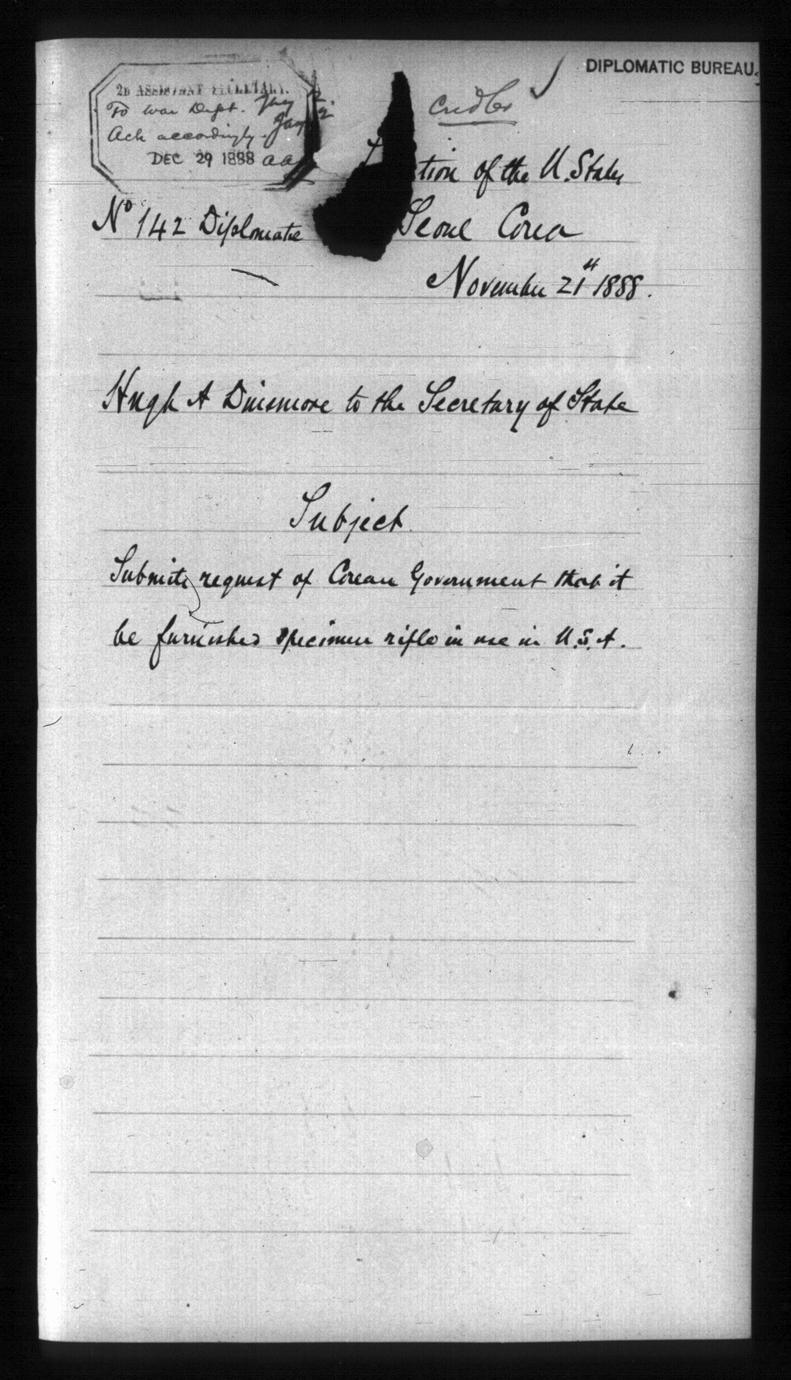 DIPLOMATIC BUREAU.
2D ASSISTANT SECRETARY.
To War Dept. Jany 2
Ack accordingly. Jany 2
DEC 29 1888 aaa
Cridler
tion of the U. States
No 142 Diplomatic Seoul Corea
November 21st 1888.
Hugh A Dinsmore to the Secretary of State
Subject
Submits request of Corean Government that it
be furnished specimen rifle in use in U.S.A.